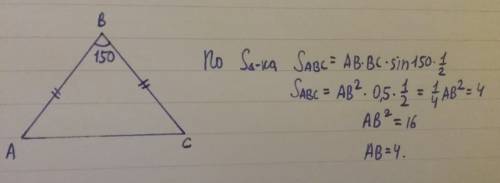 B
150
A
C
По S∆-ка S_ABC = AB·BC·sin150·1/2
S_ABC = AB²·0,5·1/2 = 1/4 AB² = 4
AB² = 16
AB = 4.